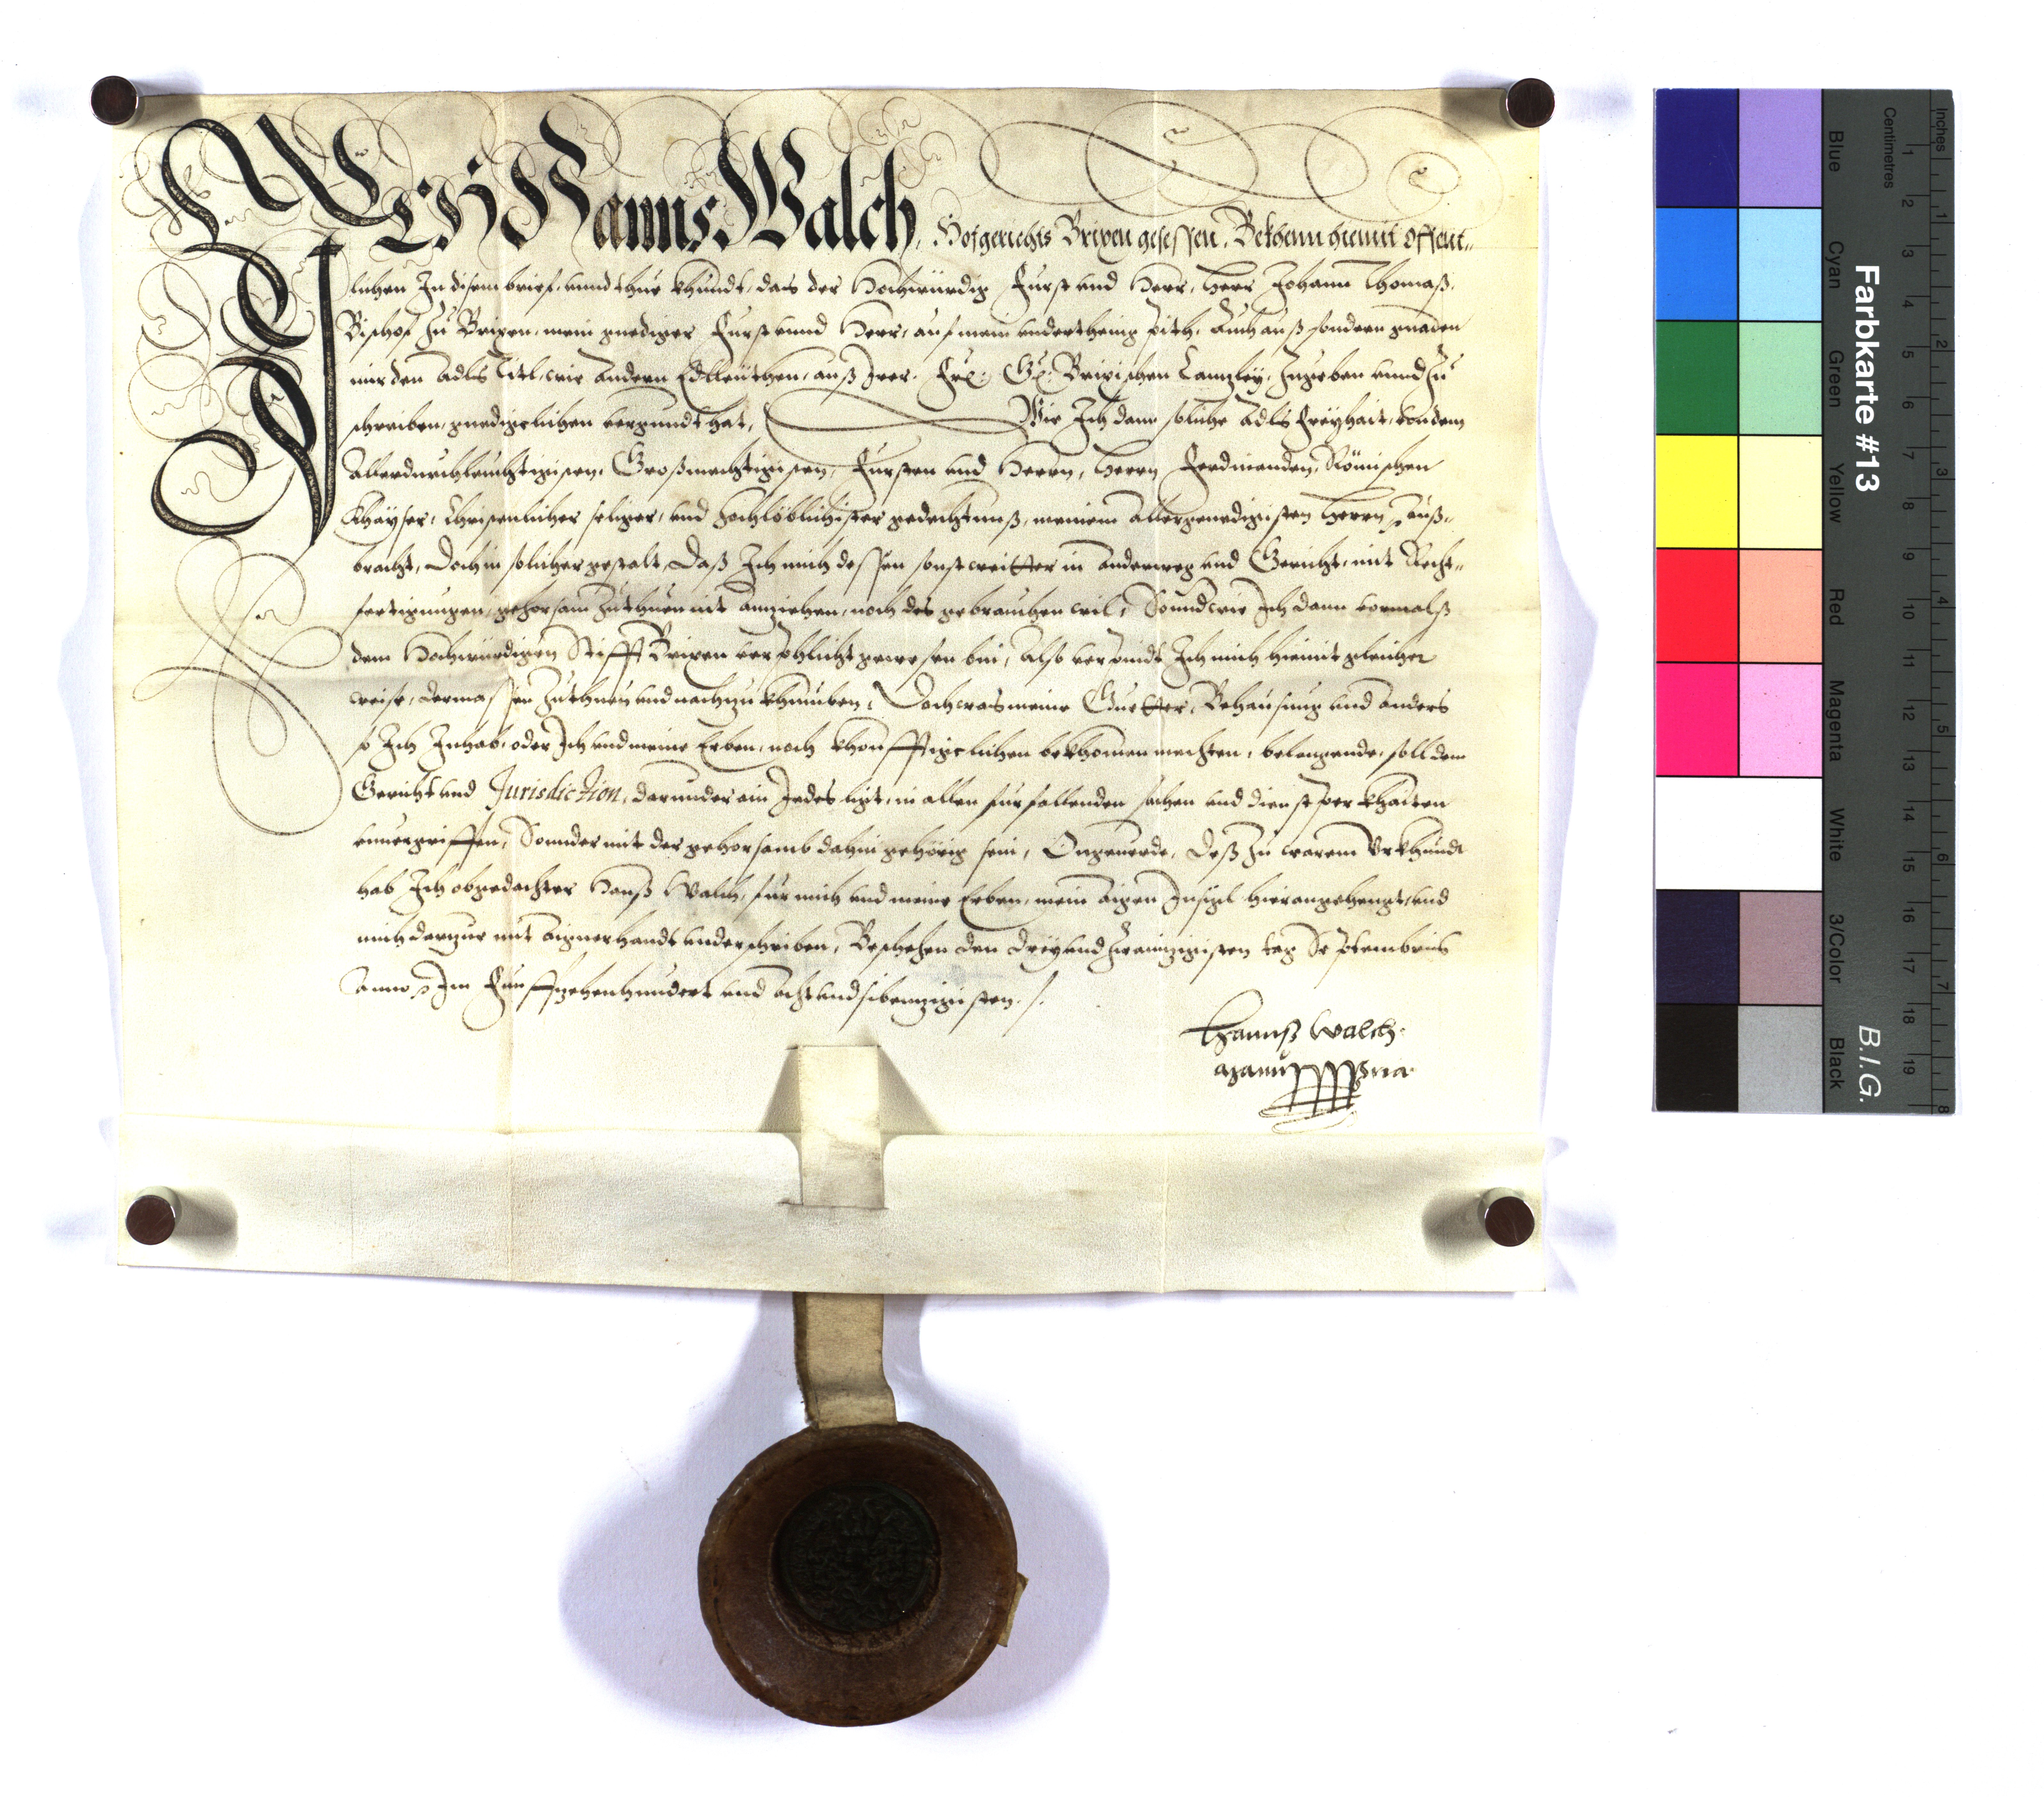 ICH Hanns Walch, Hofgerichts Brixen gesessen. Bekhenn hiemit offent-
lichen In disem brief, unnd thue khundt, das der Hochwürdig Furst und Herr, Herr Johann Thomaß,
Bischof zu Brixen, mein gnediger Furst unnd Herr, auf mein underthenig pith, auch auß sondern gnaden
mir den Adls Titl, wie andern Edlleüthen, auß Irer. Fr: G: Brixischen Canzley, zugeben unnd zu
schreiben, gnedigelichen vergundt hat, Wie Ich dann soliche Adls freyhait, von dem
Allerdurchleuchtigisten, Großmechtigisten, Fursten und Herrn, Herrn Ferdinanden, Römischen
Khayser, Christenlicher seliger, und hochlöblichister gedechtnuß, meinem Allergenedigisten Herrn, auß-
bracht, Doch in solicher gestalt, Daß Ich mich dessen sonst weitter in anderweg und Gericht, mit Recht-
fertigungen, gehorsam zuthuen nit anziehen, noch des gebrauchen wil, Sound wie Ich dann vormalß
dem Hochwürdigen Stifft Brixen verpflicht gewesen bin, also verpindt Ich mich hiemit gleicher
weise, dermassen zuthuen und nachzukhumben, Doch was meine Guetter, Behausung und anders
so Ich Inhab, oder Ich und meine Erben, noch khonfftigelichen bekhomen mechten, belangende, soll dem
Gericht und Jurisdiction, darunder ain Jedes ligt, in allen furfallenden sachen und dienstperkhaiten
unuergriffen, Sonnder mit der gehorsamb dahin gehörig sein, Ongeuerde, Deß zu warem Urkhundt
hab Ich obgedachter Hanß Walch, fur mich und meine Erben, mein aigen Insigl hieran gehengt, und
mich darzue mit aigner handt underschriben, Beschehen den dreyundzwainzigisten tag Septembris
Anno Im Funffzehenhundert und achtundsibenzigisten.
Hannß Walch
manu ppria
Farbkarte #13
B.I.G.
Blue
Cyan
Green
Yellow
Red
Magenta
White
3/Color
Black
Centimetres
Inches
1 2 3 4 5 6 7 8 9 10 11 12 13 14 15 16 17 18 19
1 2 3 4 5 6 7 8